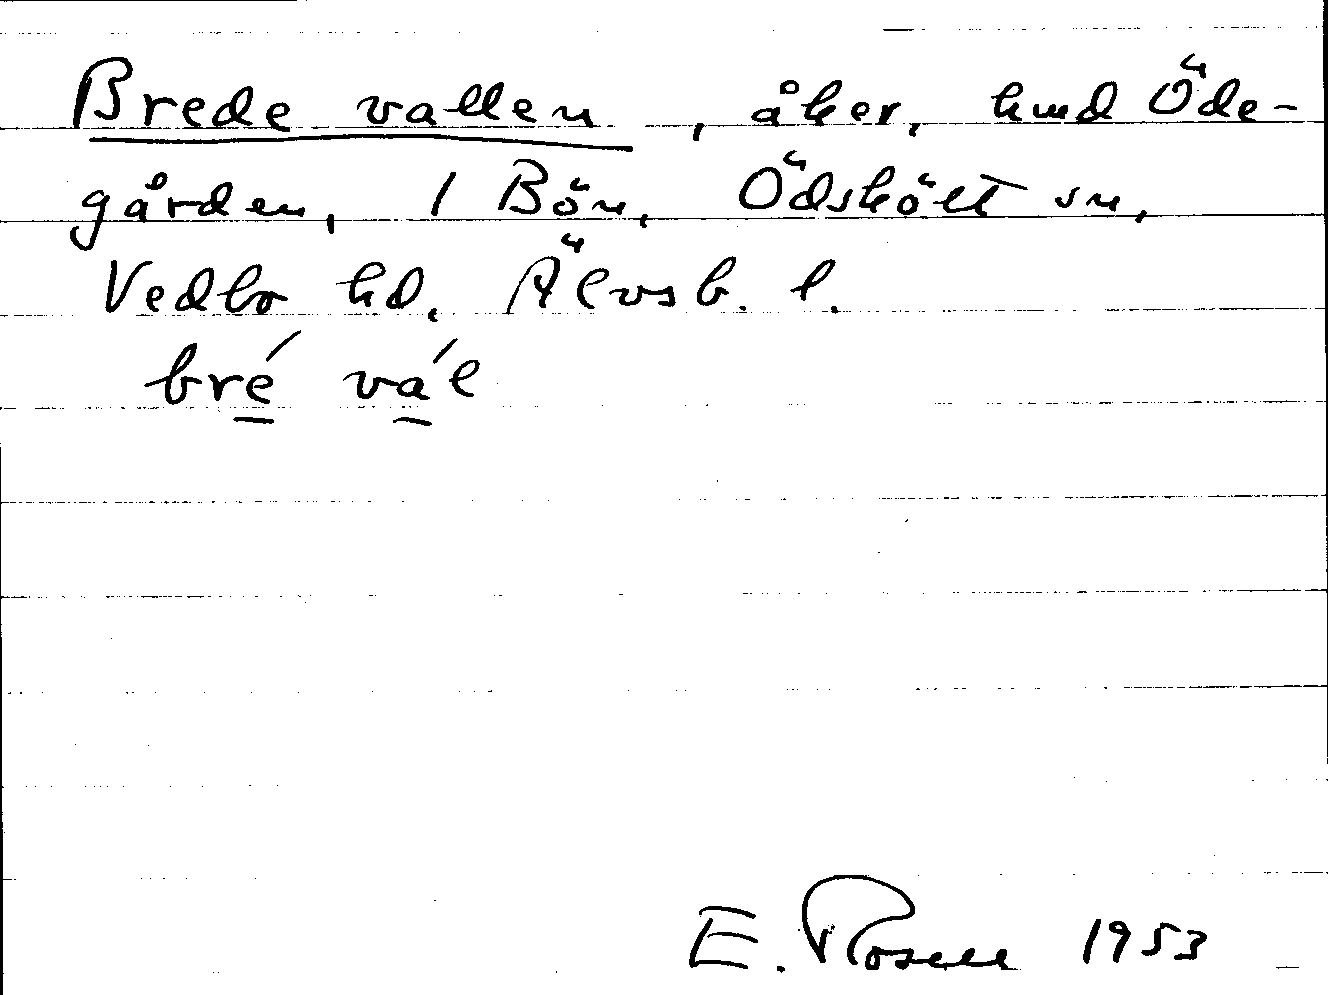 Brede vallen, åker, hmd Öde-
gården, 1 Bön, Ödskölt sn,
Vedbo hd, Älvsb. l.
bré vál
E. Rosell 1953